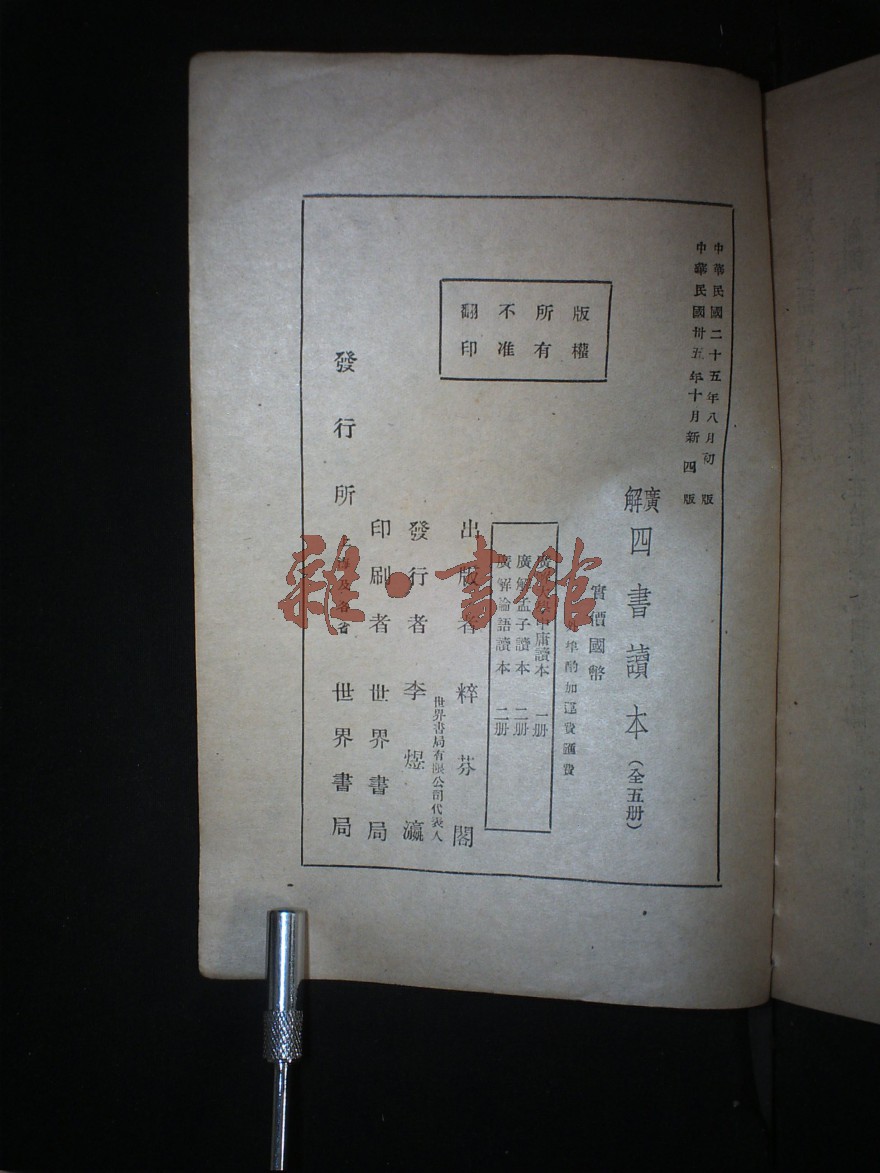 中華民國二十五年八月初版
中華民國卅五年十月新四版
廣解四書讀本(全五册)
實價國幣
埠酌加運費匯費
版權
所有
不准
翻印
廣解大學中庸讀本 一册
廣解孟子讀本 二册
廣解論語讀本 二册
出版者 粹芬閣
世界書局有限公司代表人
發行者 李煜瀛
印刷者 世界書局
發行所 上海及各省 世界書局
雜·書館